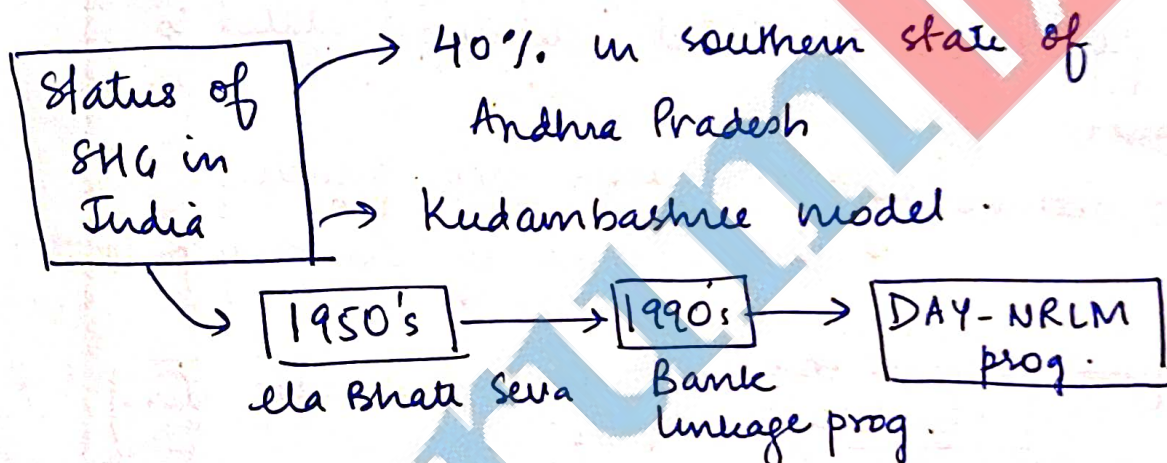 Status of
SHG in
India
40% in southern state of
Andhra Pradesh
Kudambashree model.
1950's
1990's
DAY-NRLM
prog.
ela Bhatt Seva
Bank
linkage prog.